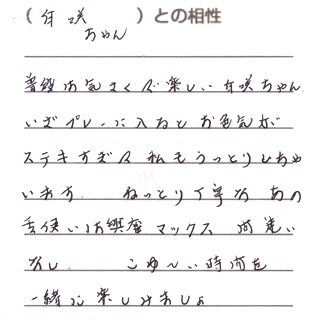 ( 有咲ちゃん )との相性
普段は気さくで楽しい有咲ちゃん
いざプレーに入るとお色気が
ステキすぎて私もうっとりしちゃ
います。 ねっとり丁寧な あの
舌使いは興奮マックス 間違い
なし。 こゆ〜い時間を
一緒に楽しみましょ